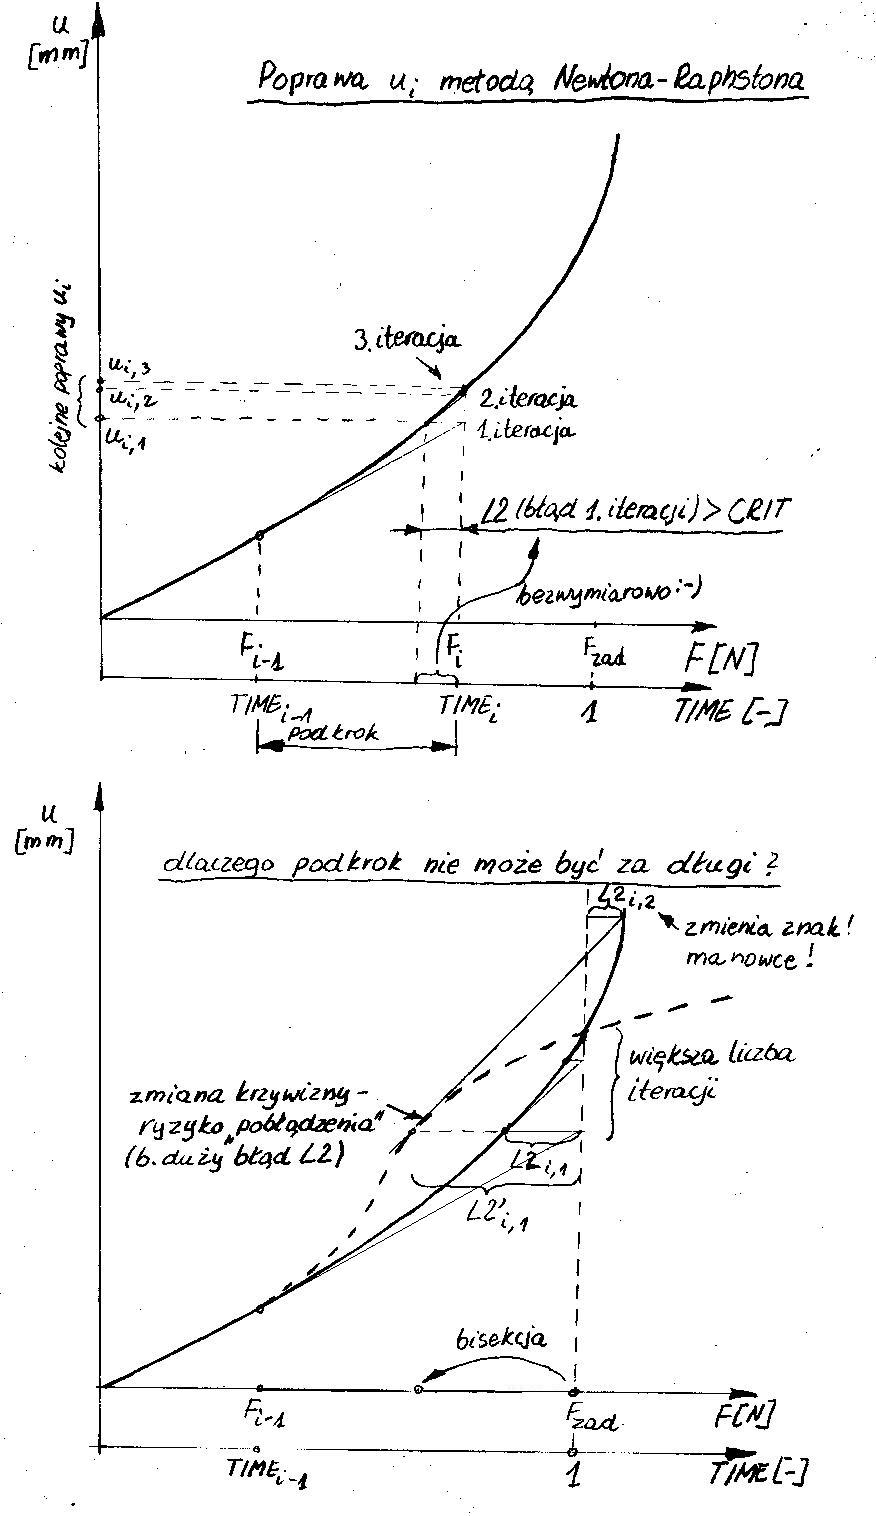 u
[mm]
Poprawa ui metodą Newtona-Raphstona
kolejne poprawy ui
3. iteracja
ui,3
ui,2
ui,1
2. iteracja
1. iteracja
L2 (błąd 1. iteracji) > CRIT
bezwymiarowo :-)
Fi-1
Fi
Fzad
F[N]
TIMEi-1
TIMEi
1
TIME [-]
podkrok
u
[mm]
dlaczego podkrok nie może być za długi?
L2i,2
zmienia znak!
manowce!
większa liczba
iteracji
zmiana krzywizny-
ryzyko „pobłądzenia"
(b. duży błąd L2)
L2i,1
L2'i,1
bisekcja
Fi-1
Fzad
F[N]
TIMEi-1
1
TIME[-]